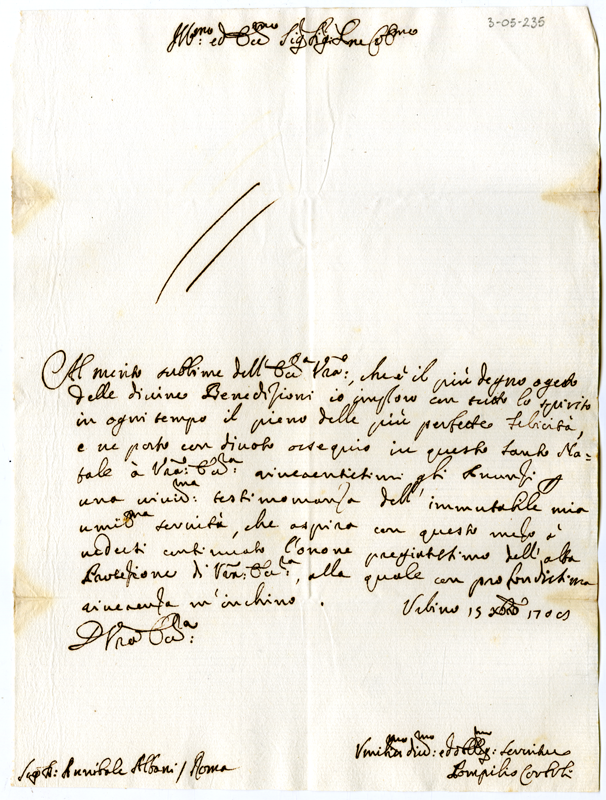 3-05-235
Ill:mo ed Ecc:mo Sig: Sig: Pne Col:mo
Al merito sublime dell' Ecc:a Vra:, che è il più degno ogetto
delle divine Benedizioni io imploro con tutto lo spirito
in ogni tempo il pieno delle più perfette felicità,
e ne porto con divoto ossequio in questo Santo Na-
tale à Vra: Ecc:a riverentissimi gli Annunzj p
una viviss:ma testimonianza dell' immutabile mia
umiliss:ma servitù, che aspira con questo mezo à
vedersi continuato l'onore pregiatissimo dell' alta
Protezione di Vra: Ecc:a, alla quale con profondissima
riverenza m'inchino.
Urbino 15 Xbre 1705
D V:ra Ecc:a
Annibale Albani / Roma
Umiliss:mo div:mo ed obblig:mo Servitore
Pompilio